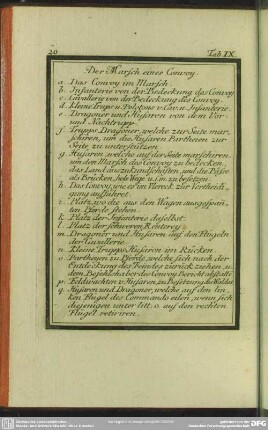 20
Tab IX.
Der Marsch einer Convoy.
a. Das Convoy im Marsch.
b. Infanterie von der Bedeckung des Convoy
c. Cavallerie von der Bedeckung des Convoy.
d. kleine Trups u. Pelotons v. Cav. u. Infanterie.
e. Dragoner und Husaren von dem Vor-
und Nachtrupp.
f. Trupps Dragoner, welche zur Seite mar-
schiren, um die Husaren Partheyen zur
Seite zu unterstützen
g. Husaren, welche auf der Seite marschieren,
um den Marsch des Convoy zu bedecken,
das Land auszukundschaften, und die Pässe
als Brücken, hole Wege u. s. w. zu besetzen
h. Das Convoy, wie es im Viereck zur Vertheidi-
gung auffähret.
i. Platz, wo die aus den Wagen ausgespan-
ten Pferde stehen
k. Platz der Infanterie daselbst.
l. Platz der schweren Reuterey
m. Dragoner und Husaren auf den Flügeln
der Cavallerie.
n. Kleine Trupps Husaren im Rücken.
o. Partheyen zu Pferde, welche sich nach der
Entdeckung des Feindes zurück ziehen, u.
dem Befehlshaber des Convoy Bericht abstatten
p. Feldwachten v. Husaren, zu Besetzung des Waldes
q. Husaren und Dragoner, welche auf den lin-
ken Flügel des Commando eilen, wenn sich
diejenigen unter litt. o. auf den rechten
Flügel retiriren.